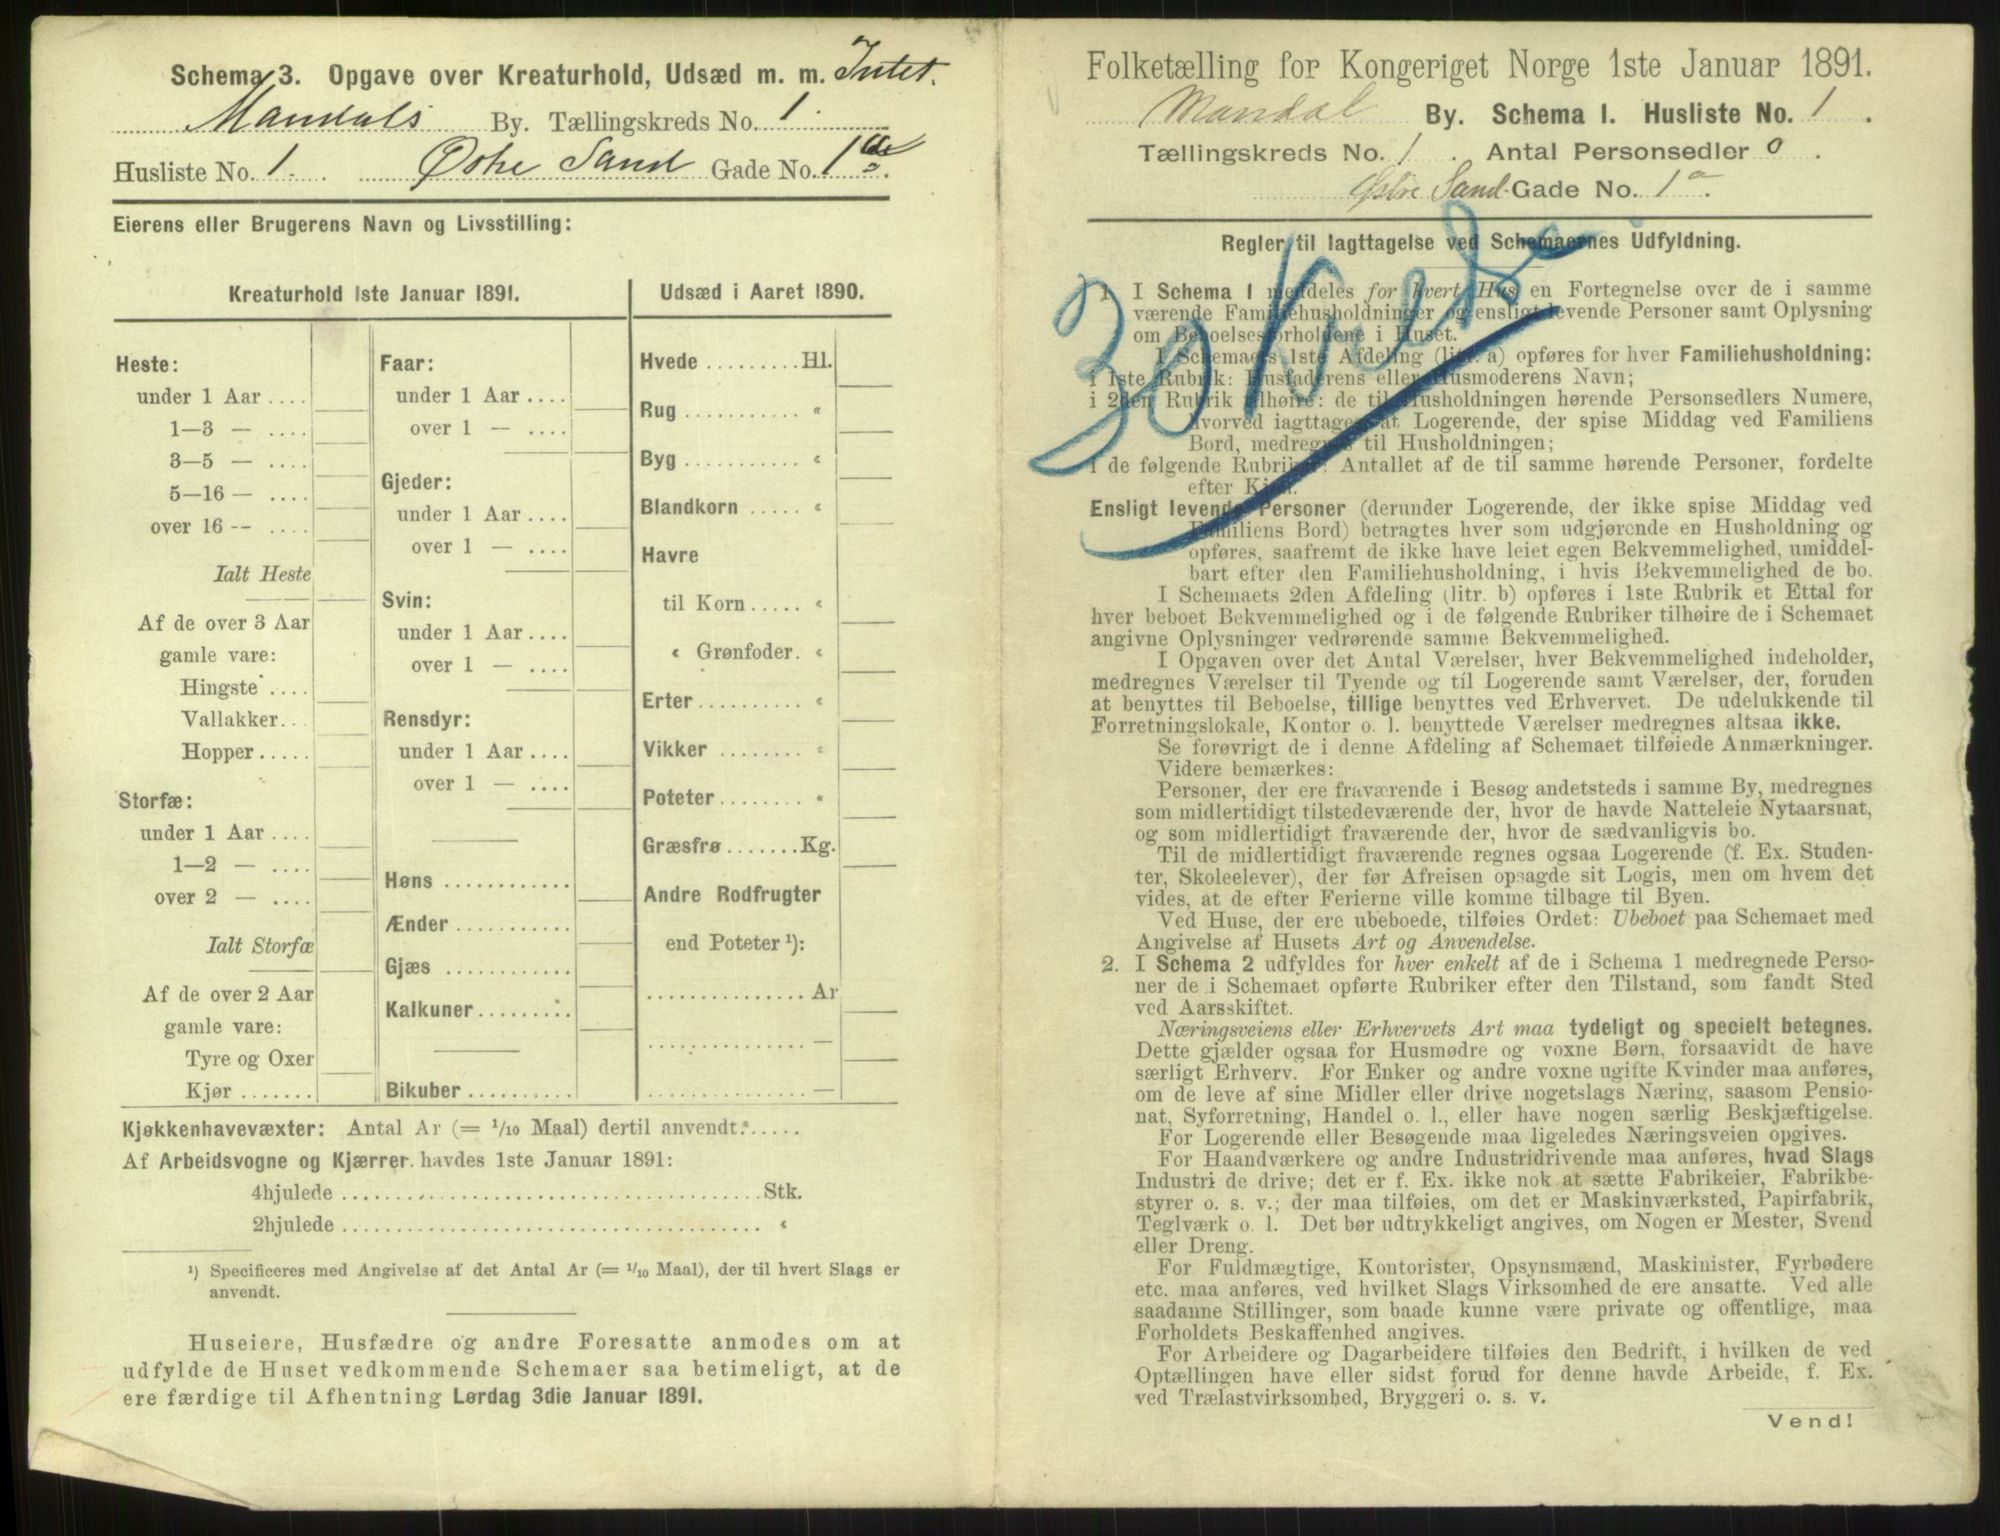 Schema 3. Opgave over Kreaturhold, Udsæd m. m. Intet.
Mandals By. Tællingskreds No. 1.
Husliste No. 1. Østre Sand Gade No. 1 a.
Eierens eller Brugerens Navn og Livsstilling:
Kreaturhold 1ste Januar 1891.
Heste:
under 1 Aar ....
1—3 — ....
3—5 — ....
5—16 — ....
over 16 -- ....
Ialt Heste
Af de over 3 Aar
gamle vare:
Hingste ....
Vallakker...
Hopper .....
Storfæ:
under 1 Aar ....
1—2 — ....
over 2 — ....
Ialt Storfæ
Af de over 2 Aar
gamle vare:
Tyre og Oxer
Kjør .......
Faar:
under 1 Aar ....
over 1 — ....
Gjeder:
under 1 Aar ....
over 1 — ....
Svin:
under 1 Aar ....
over 1 — ....
Rensdyr:
under 1 Aar ....
over 1 — ....
Høns ............
Ænder ...........
Gjæs ............
Kalkuner.........
Bikuber ..........
Udsæd i Aaret 1890.
Hvede ......... Hl.
Rug ........... «
Byg ............ «
Blandkorn ..... «
Havre
til Korn ..... «
« Grønfoder. «
Erter .......... «
Vikker ........ «
Poteter ........ «
Græsfrø ....... Kg.
Andre Rodfrugter
end Poteter ¹):
............... Ar
............... —
............... —
Kjøkkenhavevæxter: Antal Ar (= 1/10 Maal) dertil anvendt: .....
Af Arbeidsvogne og Kjærrer havdes 1ste Januar 1891:
4hjulede ........................................ Stk.
2hjulede ........................................ «
¹) Specificeres med Angivelse af det Antal Ar (= 1/10 Maal), der til hvert Slags er
anvendt.
Huseiere, Husfædre og andre Foresatte anmodes om at
udfylde de Huset vedkommende Schemaer saa betimeligt, at de
ere færdige til Afhentning Lørdag 3die Januar 1891.
Folketælling for Kongeriget Norge 1ste Januar 1891.
Mandal By. Schema I. Husliste No. 1.
Tællingskreds No. 1. Antal Personsedler 0.
Østre Sand Gade No. 1 a.
Regler til Iagttagelse ved Schemaernes Udfyldning.
1. I Schema 1 meddeles for hvert Hus en Fortegnelse over de i samme
værende Familiehusholdninger og ensligt levende Personer samt Oplysning
om Beboelsesforholdene i Huset.
I Schemaets 1ste Afdeling (litr. a) opføres for hver Familiehusholdning:
i 1ste Rubrik: Husfaderens eller Husmoderens Navn;
i 2den Rubrik tilhøire: de til Husholdningen hørende Personsedlers Numere,
hvorved iagttages, at Logerende, der spise Middag ved Familiens
Bord, medregnes til Husholdningen;
i de følgende Rubriker: Antallet af de til samme hørende Personer, fordelte
efter Kjøn.
Ensligt levende Personer (derunder Logerende, der ikke spise Middag ved
Familiens Bord) betragtes hver som udgjørende en Husholdning og
opføres, saafremt de ikke have leiet egen Bekvemmelighed, umiddel-
bart efter den Familiehusholdning, i hvis Bekvemmelighed de bo.
I Schemaets 2den Afdeling (litr. b) opføres i 1ste Rubrik et Ettal for
hver beboet Bekvemmelighed og i de følgende Rubriker tilhøire de i Schemaet
angivne Oplysninger vedrørende samme Bekvemmelighed.
I Opgaven over det Antal Værelser, hver Bekvemmelighed indeholder,
medregnes Værelser til Tyende og til Logerende samt Værelser, der, foruden
at benyttes til Beboelse, tillige benyttes ved Erhvervet. De udelukkende til
Forretningslokale, Kontor o. l. benyttede Værelser medregnes altsaa ikke.
Se forøvrigt de i denne Afdeling af Schemaet tilføiede Anmærkninger.
Videre bemærkes:
Personer, der ere fraværende i Besøg andetsteds i samme By, medregnes
som midlertidigt tilstedeværende der, hvor de havde Natteleie Nytaarsnat,
og som midlertidigt fraværende der, hvor de sædvanligvis bo.
Til de midlertidigt fraværende regnes ogsaa Logerende (f. Ex. Studen-
ter, Skoleelever), der før Afreisen opsagde sit Logis, men om hvem det
vides, at de efter Ferierne ville komme tilbage til Byen.
Ved Huse, der ere ubeboede, tilføies Ordet: Ubeboet paa Schemaet med
Angivelse af Husets Art og Anvendelse.
2. I Schema 2 udfyldes for hver enkelt af de i Schema 1 medregnede Perso-
ner de i Schemaet opførte Rubriker efter den Tilstand, som fandt Sted
ved Aarsskiftet.
Næringsveiens eller Erhvervets Art maa tydeligt og specielt betegnes.
Dette gjælder ogsaa for Husmødre og voxne Børn, forsaavidt de have
særligt Erhverv. For Enker og andre voxne ugifte Kvinder maa anføres,
om de leve af sine Midler eller drive nogetslags Næring, saasom Pensio-
nat, Syforretning, Handel o. l., eller have nogen særlig Beskjæftigelse.
For Logerende eller Besøgende maa ligeledes Næringsveien opgives.
For Haandværkere og andre Industridrivende maa anføres, hvad Slags
Industri de drive; det er f. Ex. ikke nok at sætte Fabrikeier, Fabrikbe-
styrer o. s. v.; der maa tilføies, om det er Maskinværksted, Papirfabrik,
Teglværk o. l. Det bør udtrykkeligt angives, om Nogen er Mester, Svend
eller Dreng.
For Fuldmægtige, Kontorister, Opsynsmænd, Maskinister, Fyrbødere
etc. maa anføres, ved hvilket Slags Virksomhed de ere ansatte. Ved alle
saadanne Stillinger, som baade kunne være private og offentlige, maa
Forholdets Beskaffenhed angives.
For Arbeidere og Dagarbeidere tilføies den Bedrift, i hvilken de ved
Optællingen have eller sidst forud for denne havde Arbeide, f. Ex.
ved Trælastvirksomhed, Bryggeri o. s. v.
Vend!